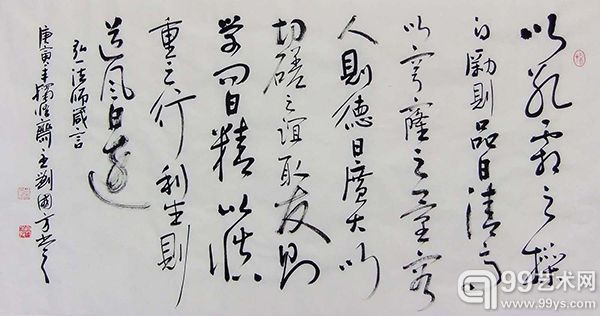 以冰霜之操
自勵則品日清高
以穹窿之量容
人則德日廣大以
切磋之誼取友則
学问日精以慎
重之行利生則
道风日遠
弘一法师箴言
庚寅年 齋主劉國方书
99艺术网
www.99ys.com